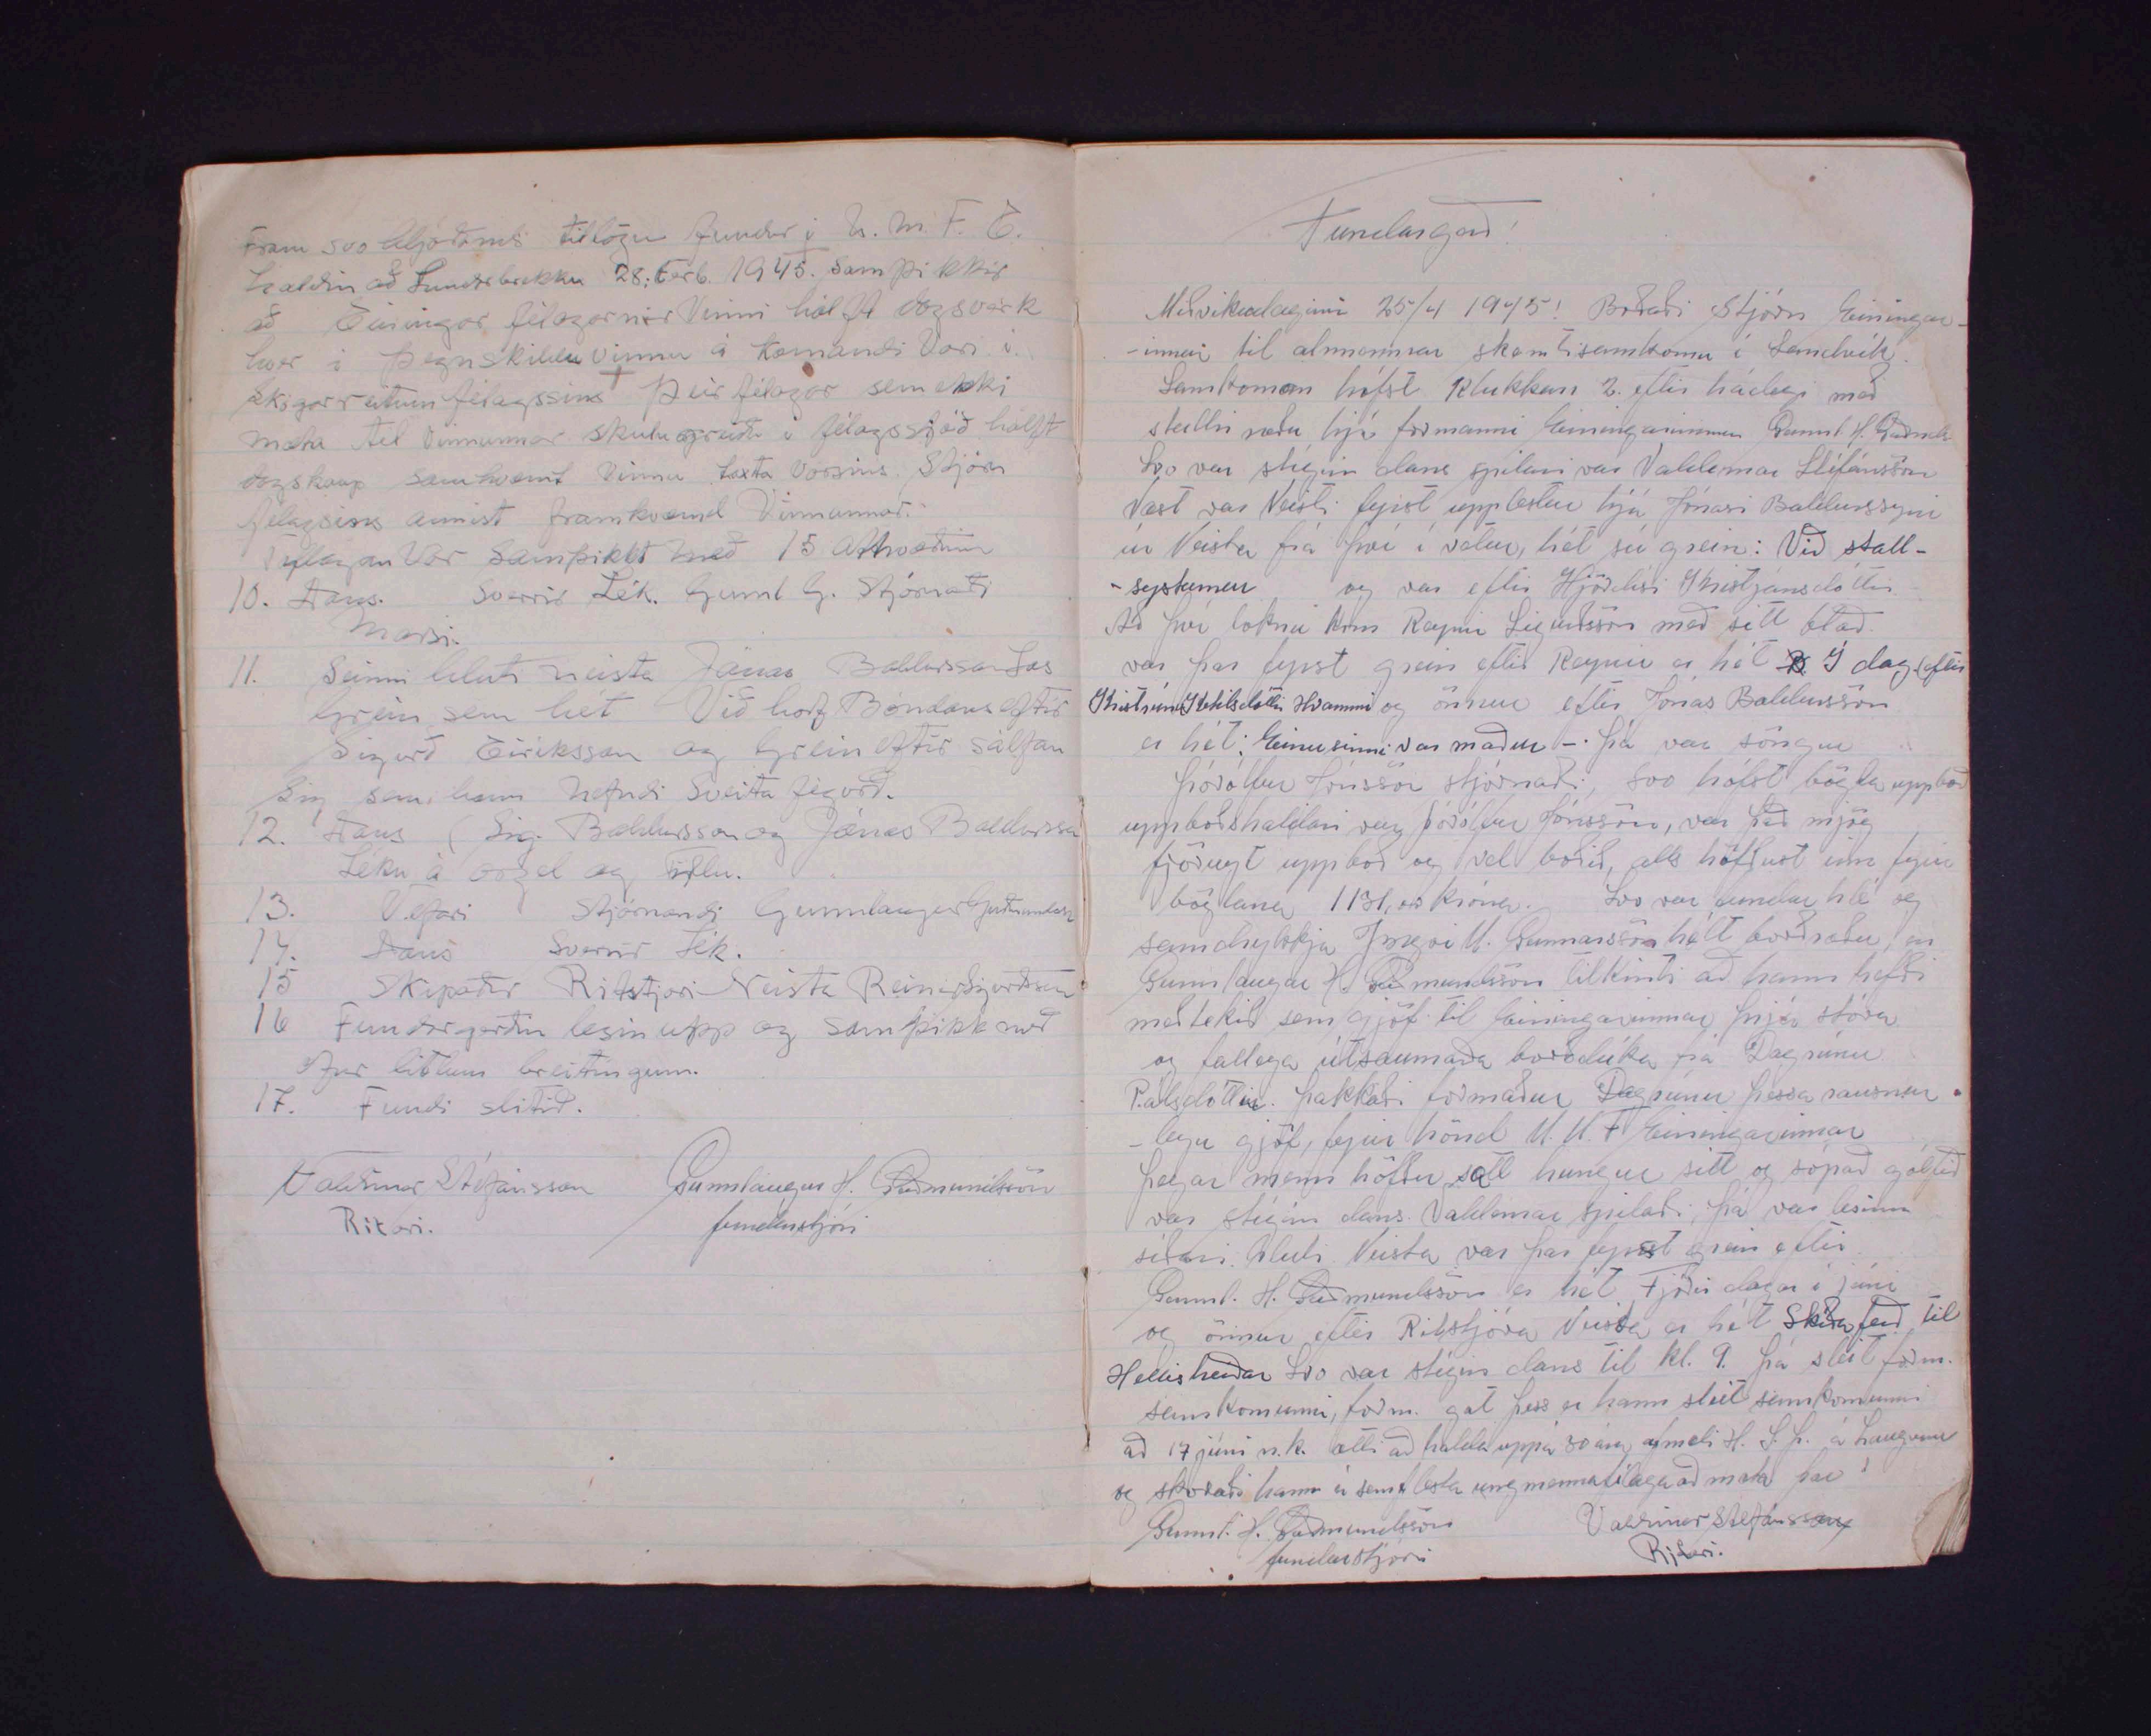 Fram svo hljóðamdi tillögu fundur í U. M. F. E.
haldin að Lundarbrekku 28. Ferb. 1945. Samþikkir
að Einingar félagarnir Vinni hálft dagsverk
hver í þegnskilduvinnu á Komandi Vori í
skógarreitum félagssins þeir félagar sem ekki
mæta til Vinnunnar skulu greiða í félagssjóð hálft
dagskaup samkvæmt Vinnu taxta Vorsins. Stjórn
félagsins annist framkvæmd Vinnunnar.
Tillagan Var Samþikkt með 15 Atkvæðum
10. Dans. Sverrir Lék. Gunnl G. Stjórnaði
Marsi.
11. Seinni hluti neista Jónas Baldursson Las
Grein sem hét Við horf Bóndans eftir
Sigurð Eiríksson og Grein eftir sálfan
Sig sem hann Nefndi Sveita fegurð.
12. Dans (Sig. Baldursson og Jónas Baldursson
Léku á orgel og Fiðlu.
13. Vefari Stjórnandi Gunnlaugur Guðmundsson
14. Dans Sverrir Lék.
15 Skipaður Ritstjori Neista Reinir Sigurðsson
16 Fundargerðin lesin upp og samþikk með
Ofur litlum breitingum.
17. Fundi slitið.
Valdimar Stefánsson Gunnlaugur H. Guðmundsson
Ritari. fundarstjóri
Fundargerð!
Miðvikudaginn 25/4 1945! Boðaði Stjórn Einingar-
-innar til almennrar skemtisamkomu í Sandvík.
Samkoman hófst Klukkan 2. eftir hádegi með
stuttri ræðu hjá formanni Einingarinnar Gunnl. H. Guðmunds
Svo var stíginn dans spilari var Valdemar Stefánsson
Næst var Neisti fyrst upplestur hjá Jónasi Baldurssyni
úr Neista frá því í vetur, hét sú grein: Við stall-
-systurnar og var eftir Hjördísi Kristjánsdóttir
Að því loknu kom Reynir Sigurðsson með sitt blað.
var þar fyrst grein eftir Reynir er hét Í dag (eftir
Kristrúnu Ketilsdóttir Hvammi og önnur eftir Jónas Baldursson
er hét: Einu sinni var maður -. þá var söngur
þórólfur Jónsson stjórnaði, svo hófst bögla uppboð
uppboðshaldari var þórólfur Jónsson, var það mjög
fjörugt uppboð og vel boðið, alls höfðust inn fyrir
böglana krónur. Svo var fundar hlé og
samdrykkja Ingvi M. Gunnarsson hélt borðræðu, en
Gunnlaugur H. Guðmundsson tilkinti að hann hefði
meðtekið sem gjöf til Einingarinnar þrjá stóra
og fallega útsaumaða borðdúka frá Dagrúnu
Pálsdóttir. þakkaði formaður Dagrúnu þessa rausnar
-legu gjöf, fyrir hönd U. M. F Einingarinnar
þegar menn höfðu satt hungur sitt og sópað gólfið
var stíginn dans. Valdemar spilaði, þá var lesinn
síðari hluti Neista var þar fyrst grein eftir
Gunnl. H. Guðmundsson er hét Fjórir dagar í júní
og önnur eftir Ritstjóra Neista er hét Skíðaferð til
Hellisheiðar Svo var stíginn dans til kl. 9. þá sleit form.
samkomunni, form. gat þess er hann sleit samkomunni
að 17 júní n.k. ætti að halda uppá 30 ára afmæli H. S. þ. á Laugum
og skoraði hann á sem flesta ungmennafélaga að mæta þar!
Gunnl. H. Guðmundsson Valdimar Stefánsson
fundarstjóri Ritari.